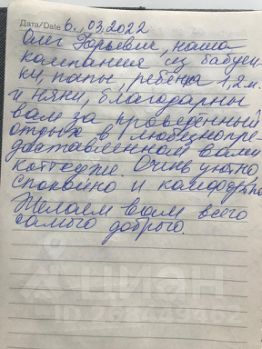 Дата/Date 6.,03.2022
Олег Юрьевич, наша
кампания из бабуш-
ки, папы, ребёнка 1,2 м.
и няни, благодарны
вам за проведённый
отдых в любезнопре-
доставленном вами
коттедже. Очень уютно,
спокойно и комфортно
Желаем вам всего
самого доброго.
ЦИАН